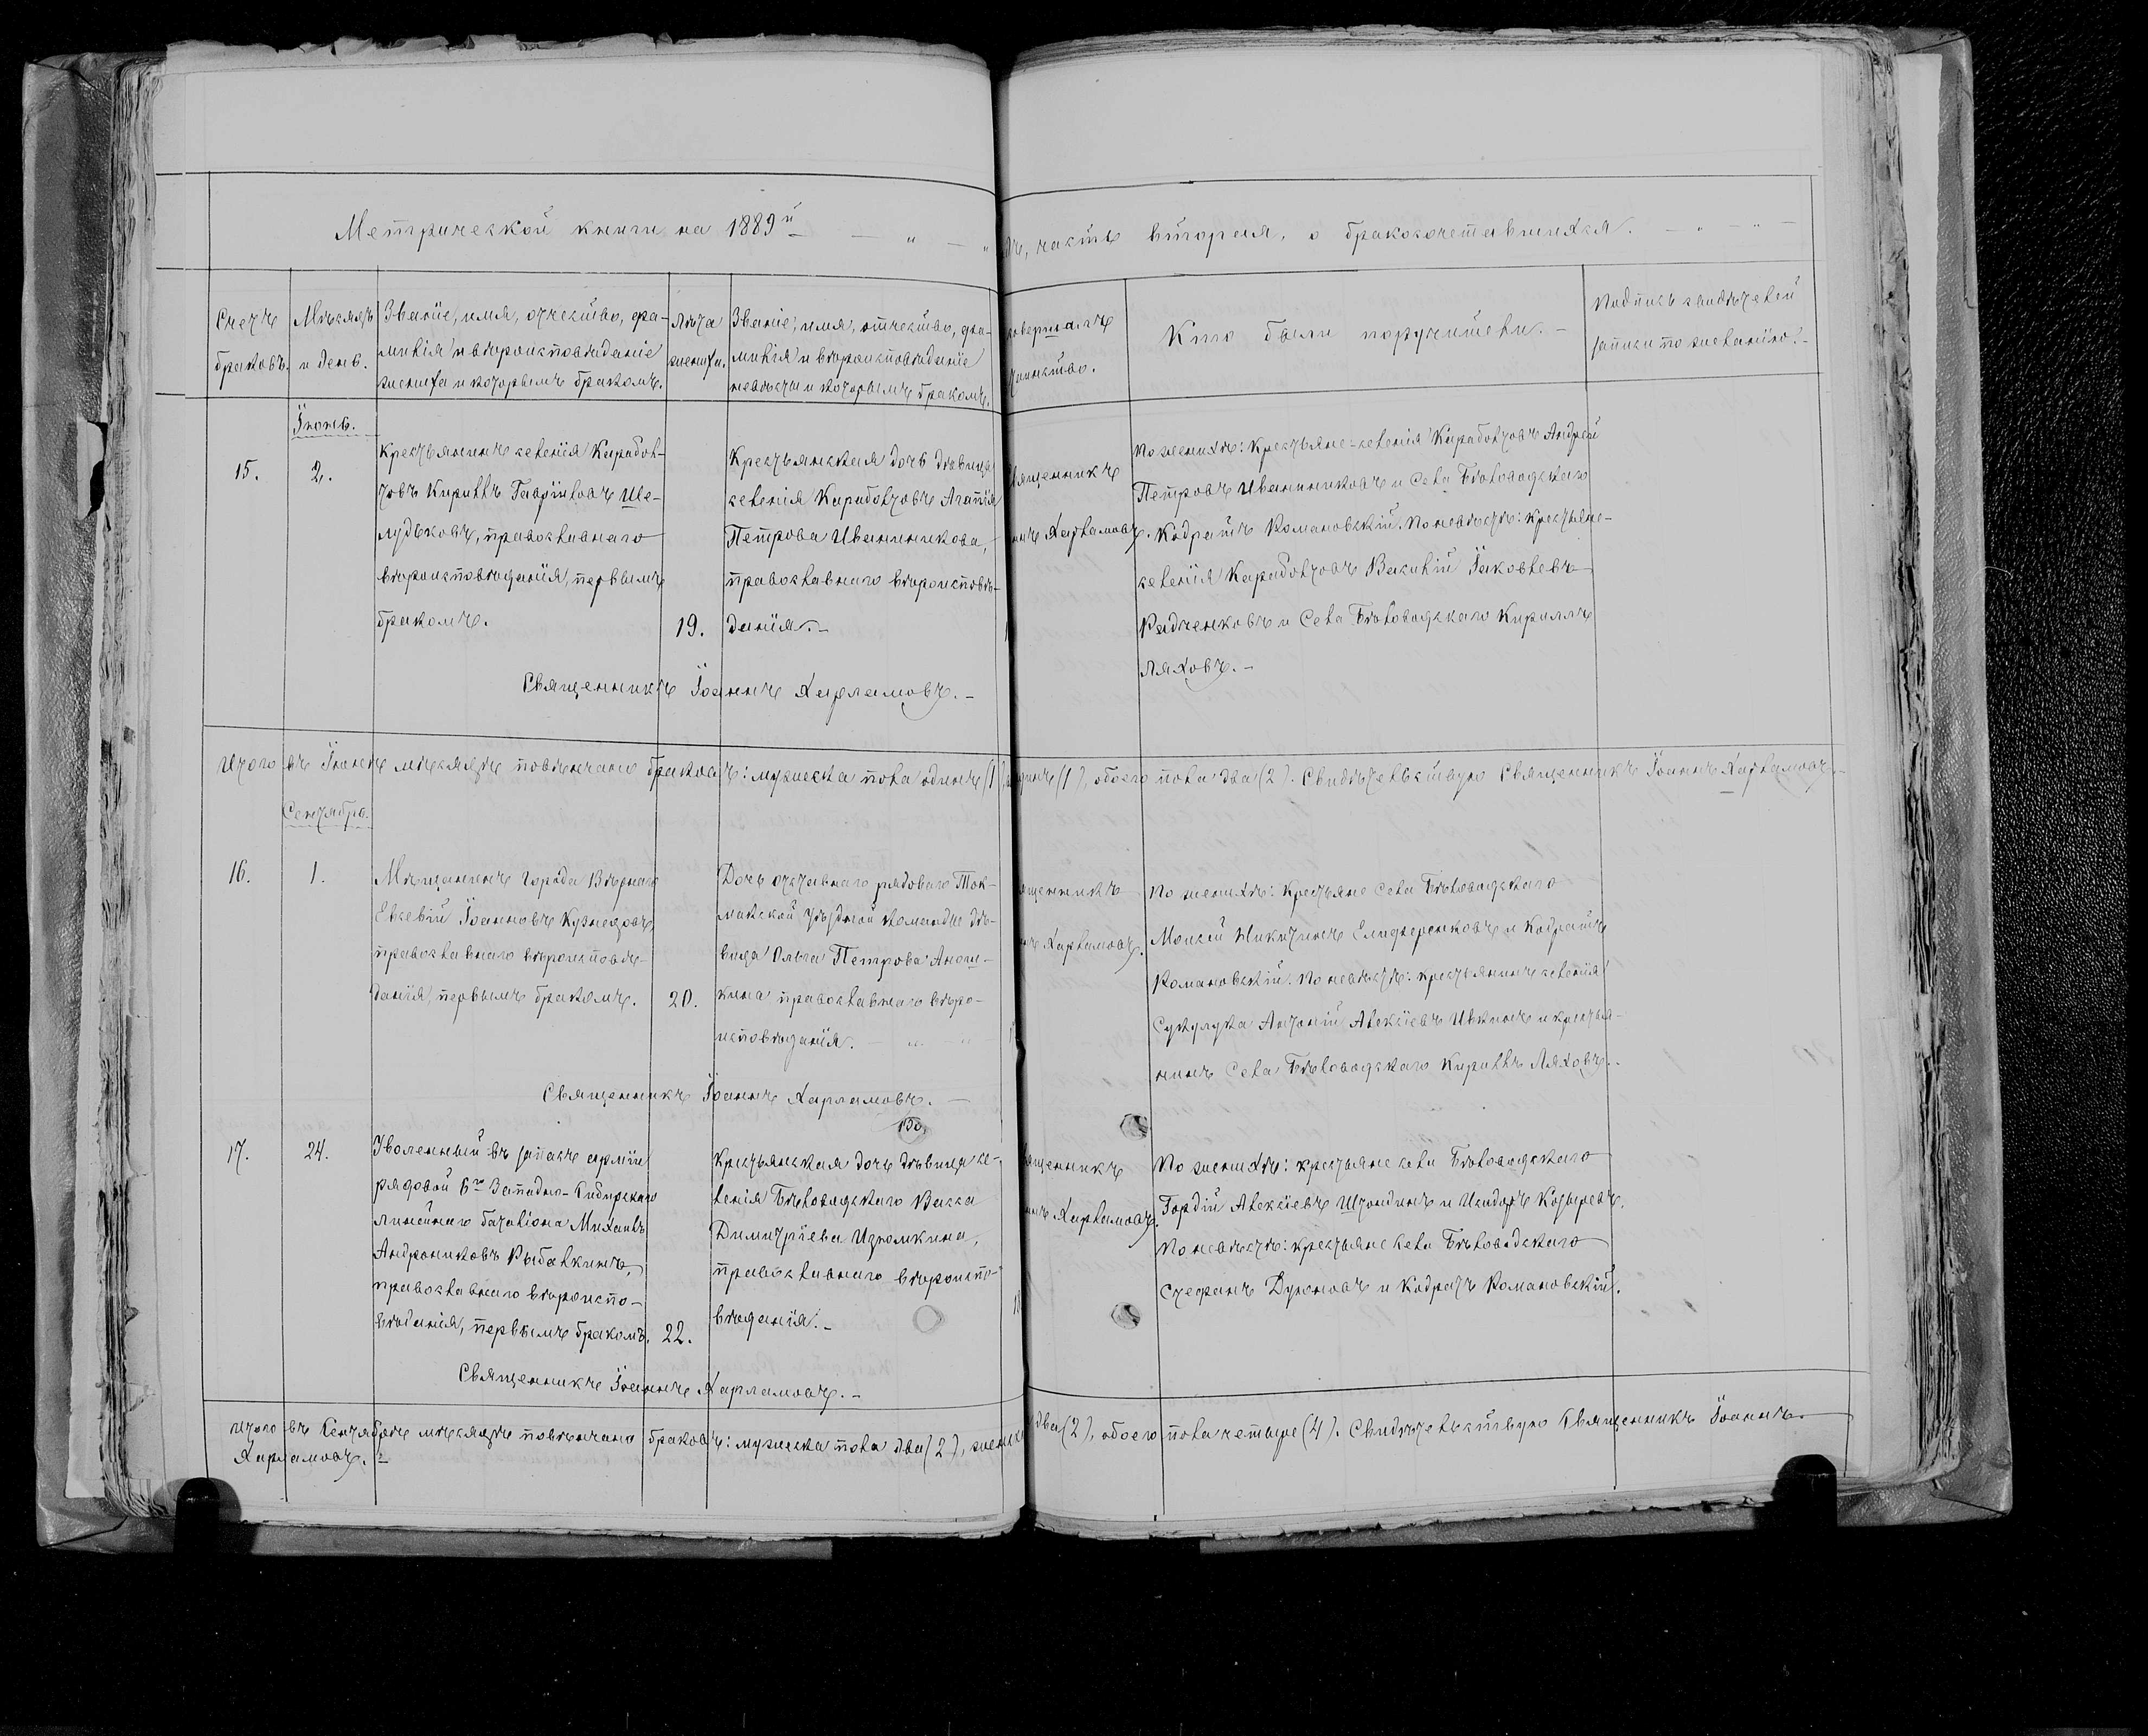 Метрической книги на 1889й
дъ, часть вторая, о бракосочетавшихся.
Счетъ
браковъ.
Мѣсяцъ
и день.
Званіе, имя, отчество, фа-
милія и вѣроисповѣданіе
жениха и которымъ бракомъ.
Лѣта
жениха.
Званіе, имя, отчество, фа-
милія и вѣроисповѣданіе
невѣсты и которымъ бракомъ.
совершалъ
таинство.
Кто были поручители.
Подпись свидѣтелей
записи по желанію.
Іюнь.
15.
2.
Крестьянинъ селенія Карабол-
товъ Кириллъ Гавріиловъ Ше-
лудьковъ, православнаго
вѣроисповѣданія, первымъ
бракомъ.
19.
Крестьянская дочь дѣвица
селенія Караболтовъ Агапія
Петрова Иванникова,
православнаго вѣроисповѣ-
данія.
вященникъ
нъ Харламовъ.
По женихѣ: Крестьяне селенія Караболтовъ Андрей
Петровъ Иванниковъ и Села Бѣловодскаго
Кодратъ Романовскій. По невѣстѣ: Крестьяне
селенія Караболтовъ Василій Іаковлевъ
Радченковъ и Села Бѣловодскаго Кириллъ
Ляховъ.
Священникъ Іоаннъ Харламовъ.
Итого въ Іюнѣ мѣсяцѣ повѣнчано браковъ: мужеска пола одинъ (1), динъ (1), обоего пола два (2). Свидѣтельствую Священникъ Іоаннъ Харламовъ.
Сентябрь.
16.
1.
Мѣщанинъ города Вѣрнаго
Евсевій Іоанновъ Кузнецовъ,
православнаго вѣроисповѣ-
данія, первымъ бракомъ.
20.
Дочь отставнаго рядового Ток-
макской уѣздной команды дѣ-
вица Ольга Петрова
православнаго вѣро-
исповѣданія.
ященникъ
нъ Харламовъ.
По женихѣ: Крестьяне Села Бѣловодскаго
Моисей Никитинъ Елиференковъ и Кодратъ
Романовскій. По невѣстѣ: крестьянинъ селенія
Сукулука Антоній Алексіевъ Ивкинъ и крестья-
нинъ Села Бѣловодскаго Кириллъ Ляховъ.
Священникъ Іоаннъ Харламовъ.
17.
24.
Уволенный въ запасъ арміи
рядовой 6го Западно-Сибирскаго
линейнаго баталіона Михаилъ
Андрониковъ Рыбалкинъ,
православнаго вѣроиспо-
вѣданія, первымъ бракомъ.
22.
Крестьянская дочь дѣвица се-
ленія Бѣловодскаго Васса
Димитріева Изюмкина,
православнаго вѣроиспо-
вѣданія.
ященникъ
нъ Харламовъ.
По женихѣ: крестьяне села Бѣловодскаго
Гордій Алексіевъ Штондинъ и Исидоръ Козыревъ.
По невѣстѣ: крестьяне села Бѣловодскаго
Стефанъ Духновъ и Кодратъ Романовскій.
Священникъ Іоаннъ Харламовъ.
Итого въ Сентябрѣ мѣсяцѣ повѣнчано браковъ: мужеска пола два (2), женска два (2), обоего пола четыре (4). Свидѣтельствую Священникъ Іоаннъ
Харламовъ.